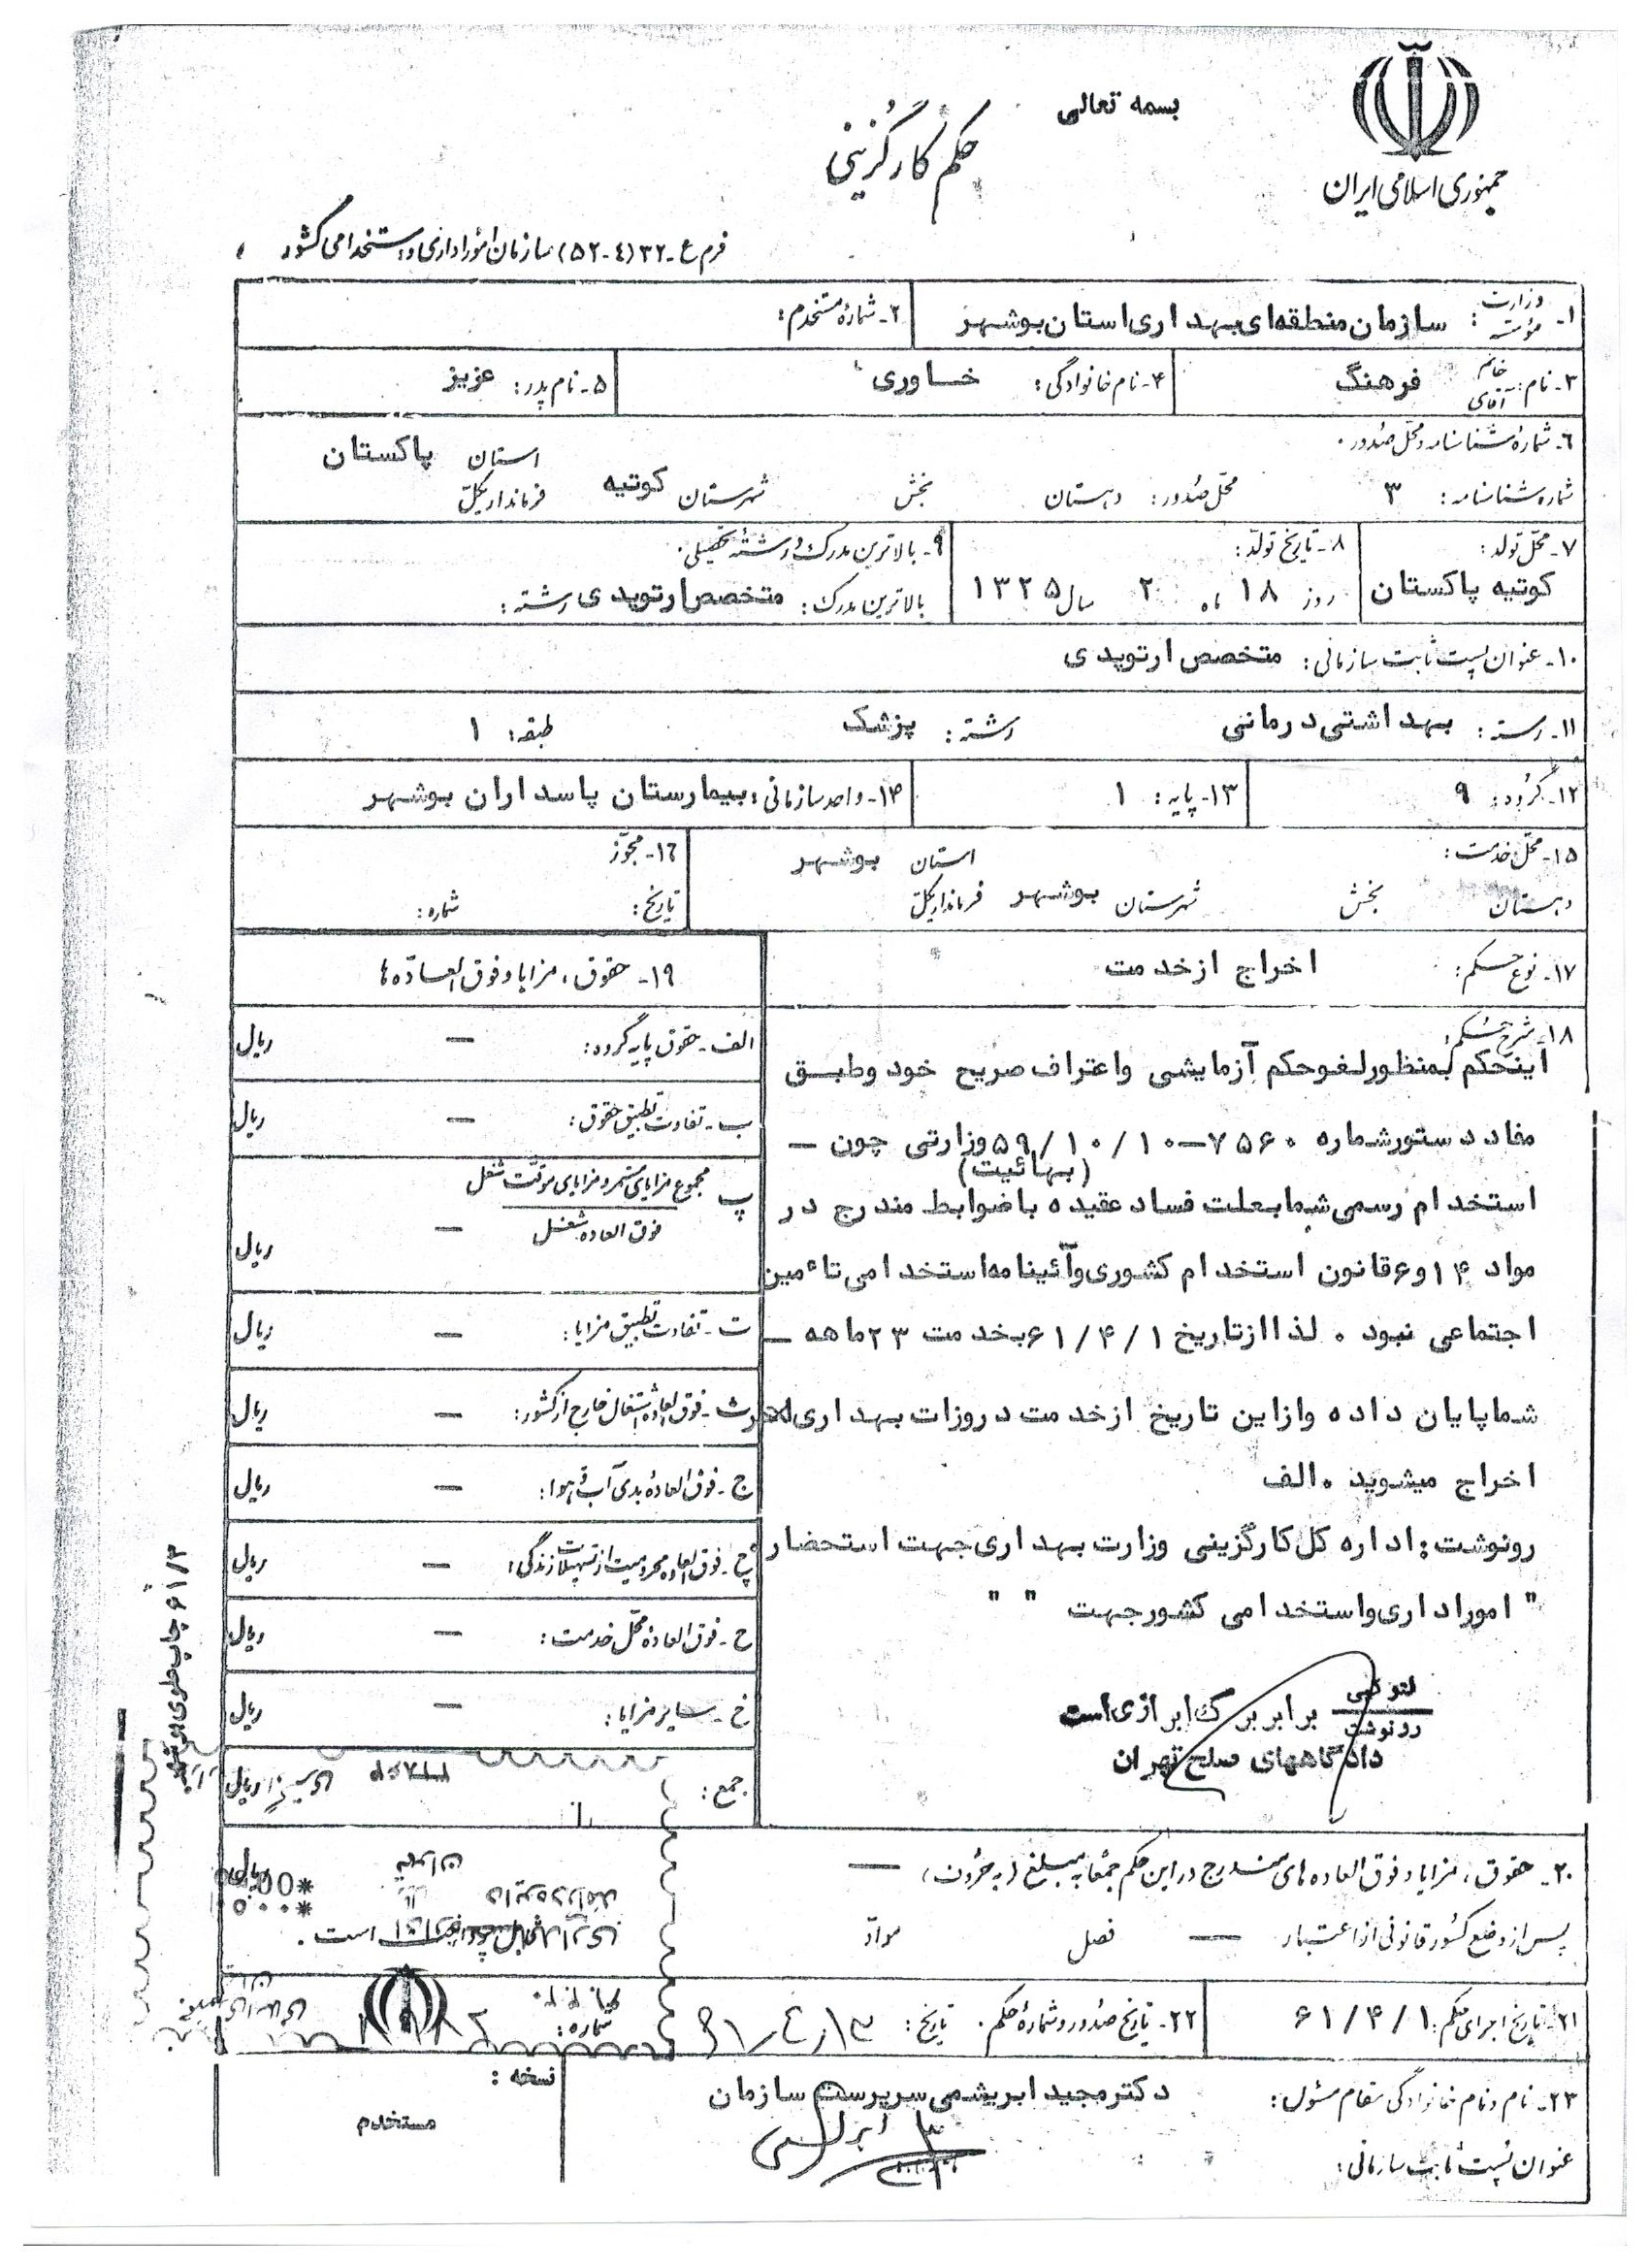 بسمه تعالی
جمهوری اسلامی ایران
حکم کارگزینی
فرم ع-۳۲ (٤-۵۲) سازمان امور اداری و استخدامی کشور
۱- وزارت مؤسسه : سازمان منطقه‌ای بهداری استان بوشهر
۲- شماره مستخدم :
۳- نام : خانم آقای فرهنگ
۴- نام خانوادگی : خاوری
۵- نام پدر : عزیز
٦- شماره شناسنامه و محل صدور .
استان پاکستان
شماره شناسنامه : ۳ محل صدور : دهستان بخش شهرستان کوتیه فرمانداریکل
۷- محل تولد :
کوتیه پاکستان
۸- تاریخ تولد :
روز ۱۸ ماه ۲ سال ۱۳۲۵
۹- بالاترین مدرک و رشته تحصیلی .
بالاترین مدرک : متخصص ارتوپدی رشته :
۱۰- عنوان پست ثابت سازمانی : متخصص ارتوپدی
۱۱- رسته : بهداشتی درمانی رشته : پزشک طبقه : ۱
۱۲- گروه : ۹
۱۳- پایه : ۱
۱۴- واحد سازمانی : بیمارستان پاسداران بوشهر
۱۵- محل خدمت : استان بوشهر
دهستان بخش شهرستان بوشهر فرمانداریکل
۱٦- مجوز
تاریخ : شماره :
۱۷- نوع حکم : اخراج ازخدمت
۱۸- شرح حکم :
اینحکم بمنظورلغوحکم آزمایشی واعتراف صریح خود وطبق
مفاد دستورشماره ۷۵۶۰-۵۹/۱۰/۱۰ وزارتی چون —
(بهائیت)
استخدام رسمی شمابعلت فساد عقیده باضوابط مندرج در
مواد ۱۴و۶قانون استخدام کشوری وآئینامه استخدامی تاٴمین
اجتماعی نبود . لذا ازتاریخ ۶۱/۴/۱ بخدمت ۲۳ماهه —
شماپایان داده وازاین تاریخ ازخدمت دروزات بهداری
اخراج میشوید . الف
رونوشت : اداره کل کارگزینی وزارت بهداری جهت استحضار
" اموراداری واستخدامی کشورجهت " "
رونوشت برابر برگ ابرازی است
دادگاههای صلح تهران
۱۹- حقوق ، مزایا و فوق العاده‌ها
الف - حقوق پایه گروه : — ریال
ب - تفاوت تطبیق حقوق : — ریال
پ مجموع مزایای مستمر و مزایای موقت شغل
فوق العاده شغل — ریال
ت - تفاوت تطبیق مزایا : — ریال
ث - فوق العاده اشتغال خارج از کشور : — ریال
ج - فوق العاده بدی آب و هوا : — ریال
چ - فوق العاده محرومیت از تسهیلات زندگی : — ریال
ح - فوق العاده محل خدمت : — ریال
خ - سایر مزایا : — ریال
جمع : ریال
۲۰- حقوق ، مزایا و فوق العاده های مندرج در این حکم جمعا به مبلغ (به حروف) — ریال
پس از وضع کسور قانونی از اعتبار — فصل مواد است .
۲۱- تاریخ اجرای حکم : ۶۱/۴/۱
۲۲- تاریخ صدور و شماره حکم . تاریخ : ۶۱/٤/۱۳ شماره :
۲۳- نام و نام خانوادگی مقام مسئول : دکتر مجید ابریشمی سرپرست سازمان
عنوان پست ثابت سازمانی :
نسخه :
مستخدم